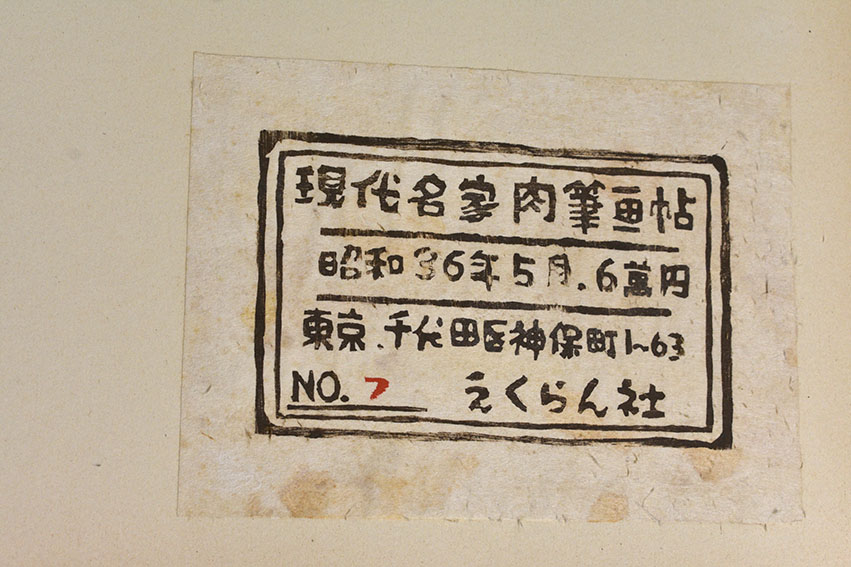 現代名家肉筆画帖
昭和36年5月.6萬円
東京.千代田区神保町1~63
NO. 7 えくらん社